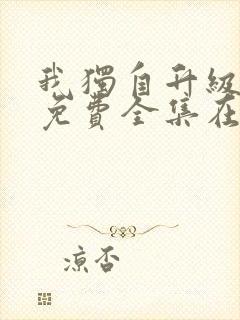 我獨自升級
免費全集在
涼否